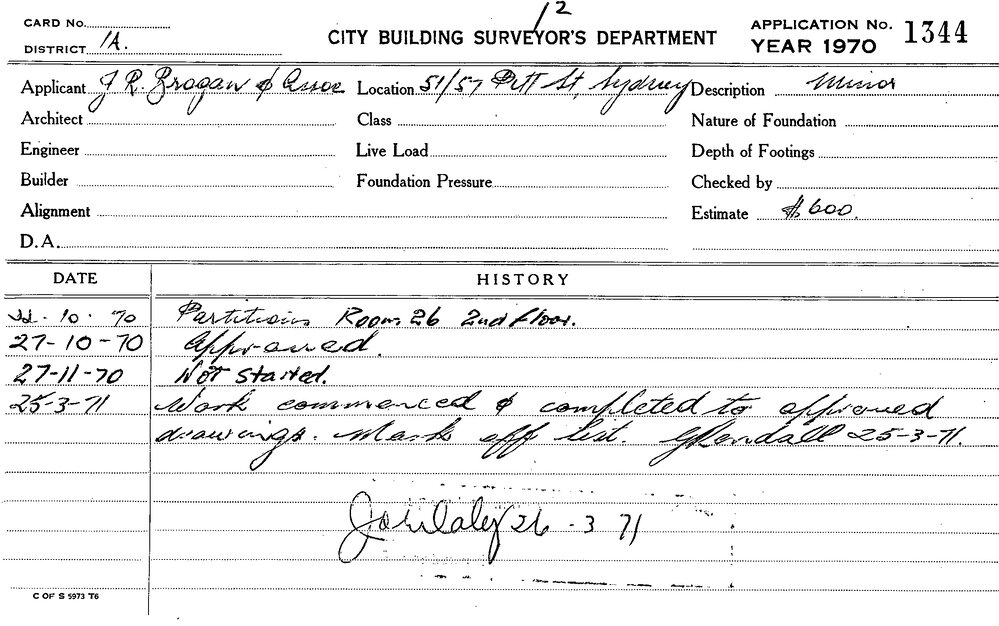 12
CARD No.
DISTRICT 1A.
CITY BUILDING SURVEYOR'S DEPARTMENT
APPLICATION No. 1344
YEAR 1970
Applicant J R. Brogan & Assoc Location 51/57 Pitt St, Sydney Description Minor
Architect Class Nature of Foundation
Engineer Live Load Depth of Footings
Builder Foundation Pressure Checked by
Alignment Estimate $600.
D.A.
DATE HISTORY
10 - 70 Partitions Room 26 2nd floor.
27-10-70 Approved.
27-11-70 Not Started.
25-3-71 Work commenced & completed to approved
drawings. Mark off list. 25-3-71.
26 - 3 71
C OF S 5973 T6